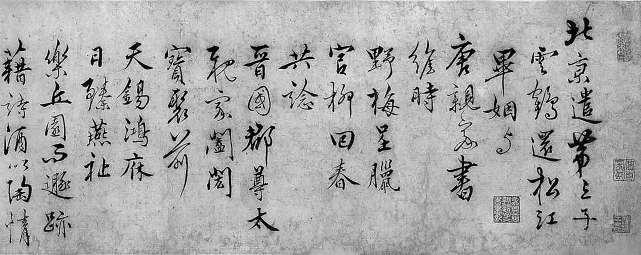 北京遣第三子
雲鶴還松江
畢姻与
唐親家書
維時
野梅呈臘
官柳回春
共諗
晉國郡尊太
親家
寶前
天錫鴻庥
日臻燕祉
樂丘園而遯跡
藉詩酒以陶情